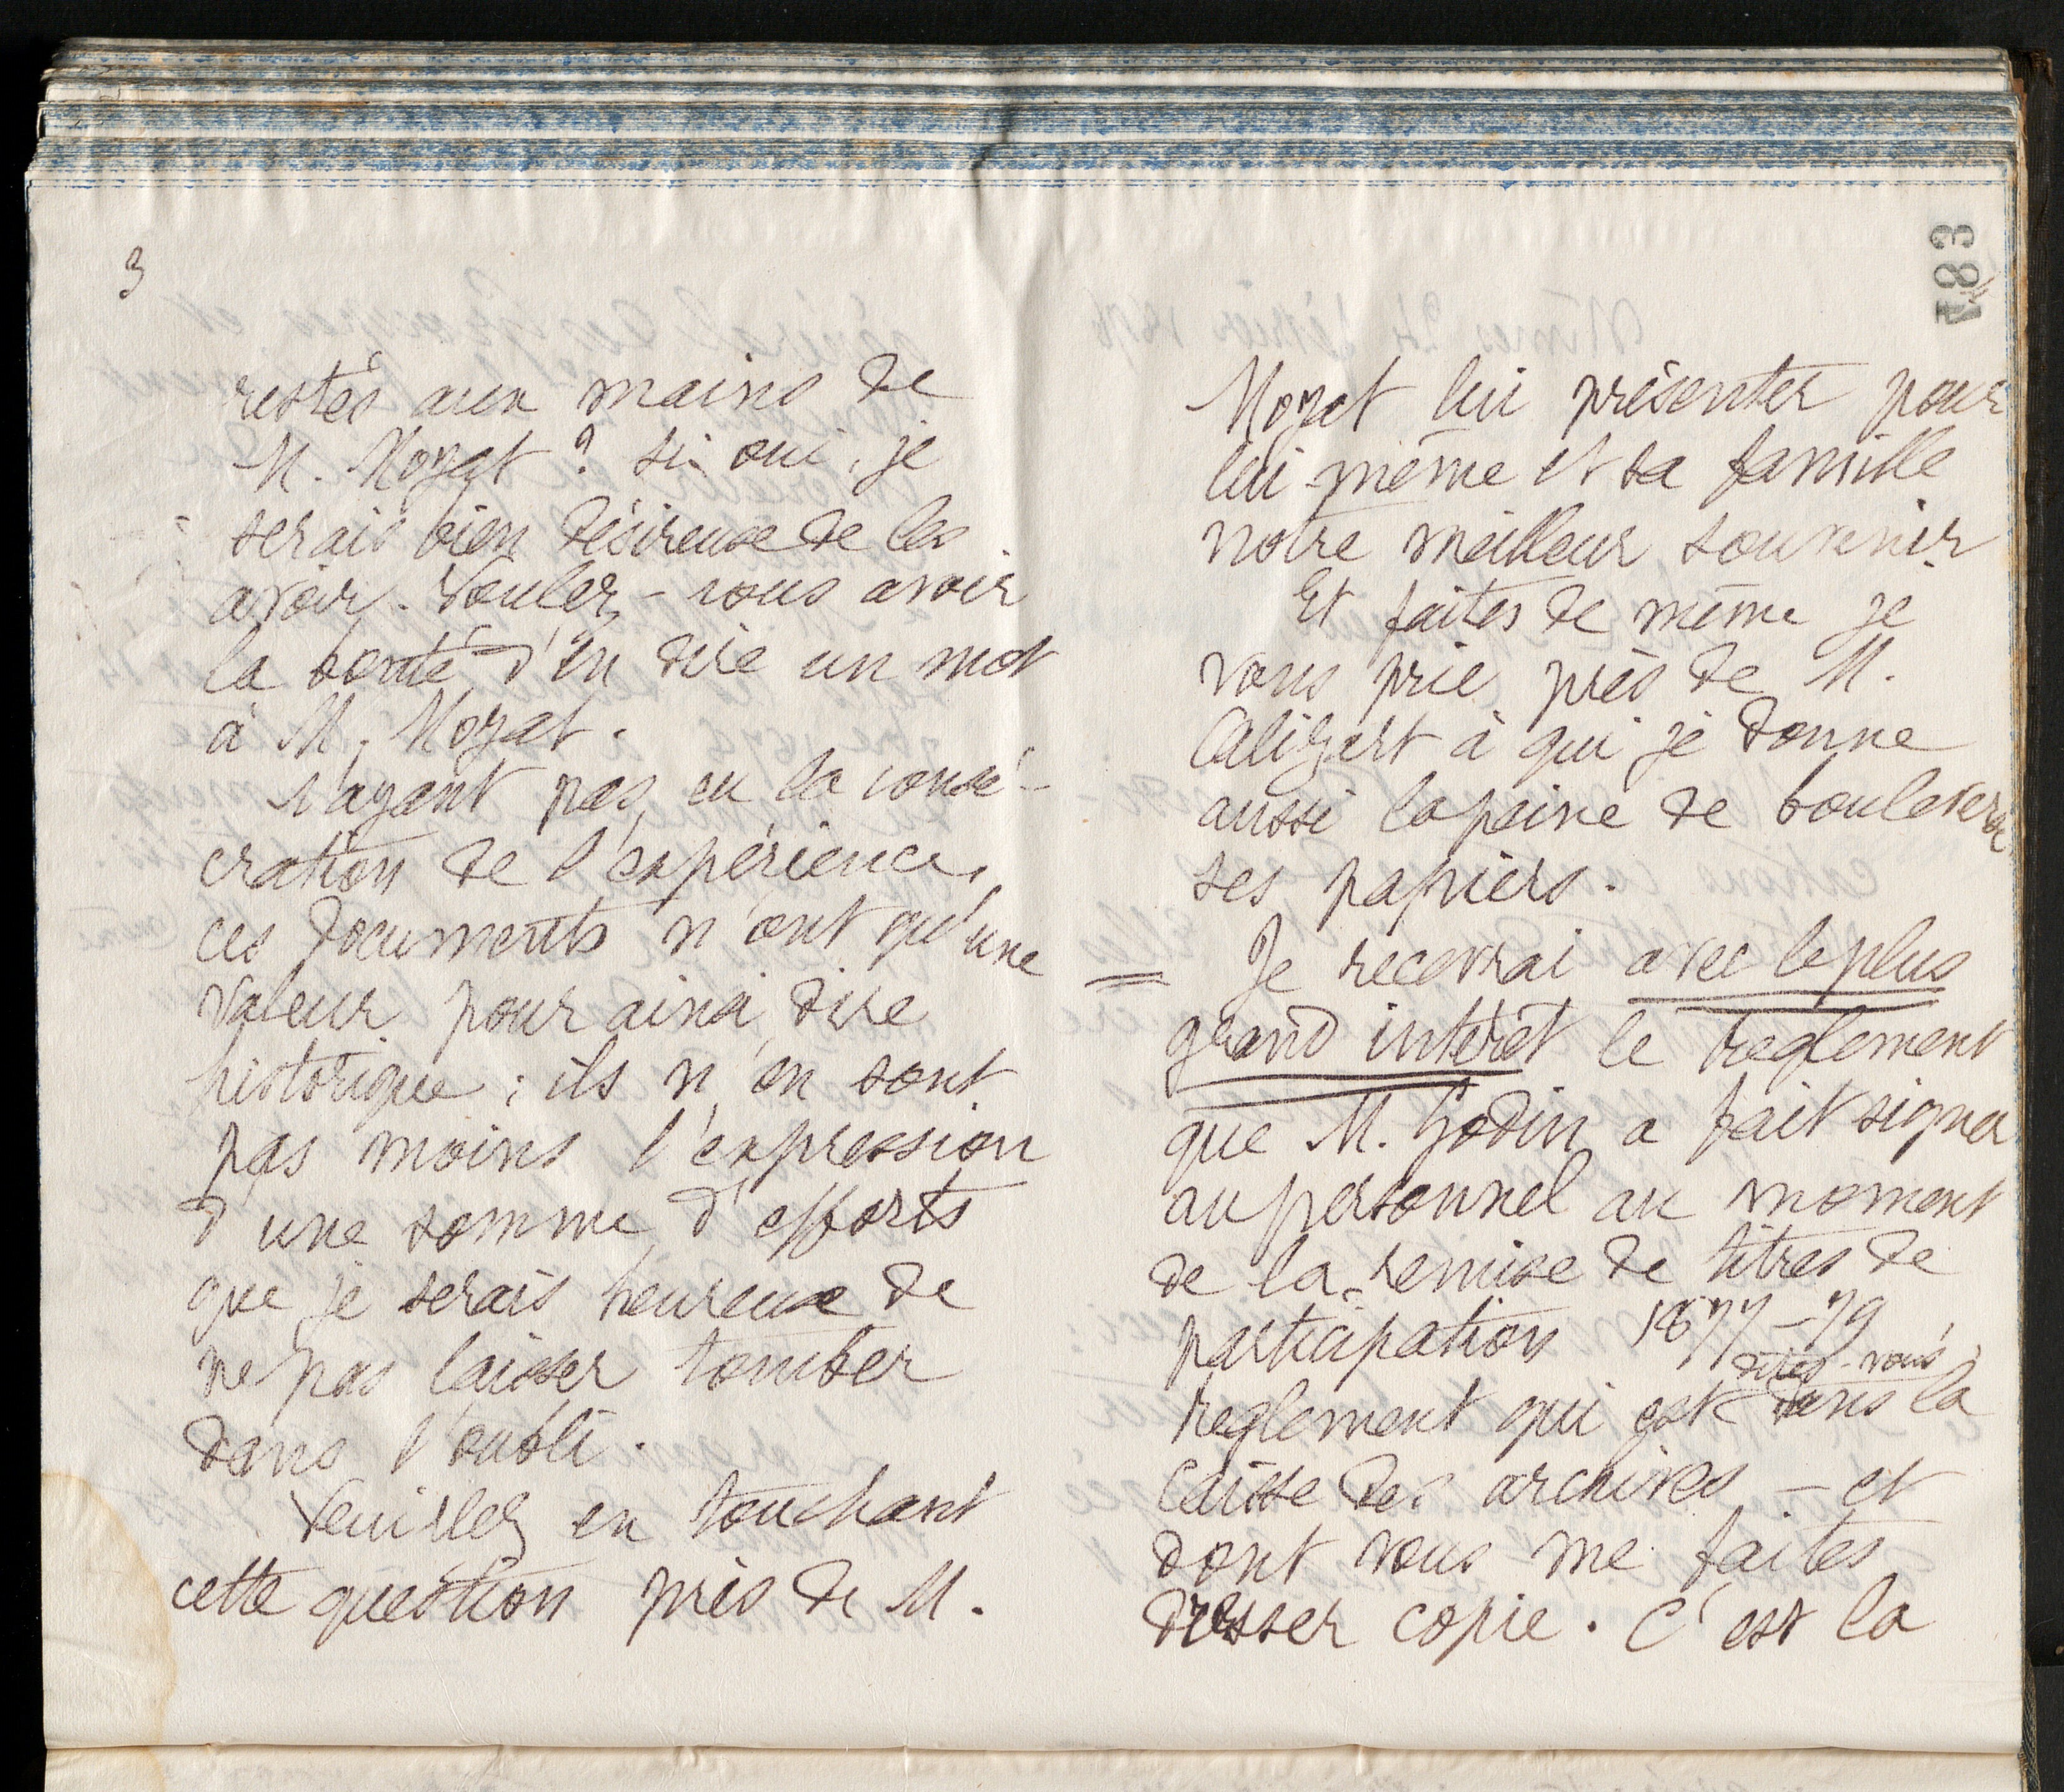 3
restés aux mains de
M. Moyat ? si oui, je
serais bien désireuse de les
avoir. Voulez-vous avoir
la bonté d'en dire un mot
à M. Moyat.
N'ayant pas eu la consé-
cration de l'expérience,
ces documents n'ont qu'une
valeur pour ainsi dire
historique ; ils n'en sont
pas moins l'expression
d'une somme d'efforts
que je serais heureuse de
ne pas laisser tomber
dans l'oubli.
Veuillez en touchant
cette question près de M.
483
Moyat lui présenter pour
lui-même et sa famille
notre meilleur souvenir.
Et faites de même je
vous prie près de M.
Alizart à qui je donne
aussi la peine de bouleverser
ses papiers.
= Je recevrai avec le plus
grand intérêt le règlement
que M. Godin a fait signer
au personnel au moment
de la remise de titres de
participation 1877-79
dites-vous,
règlement qui est dans la
caisse des archives – et
dont vous me faites
dresser copie. C'est la